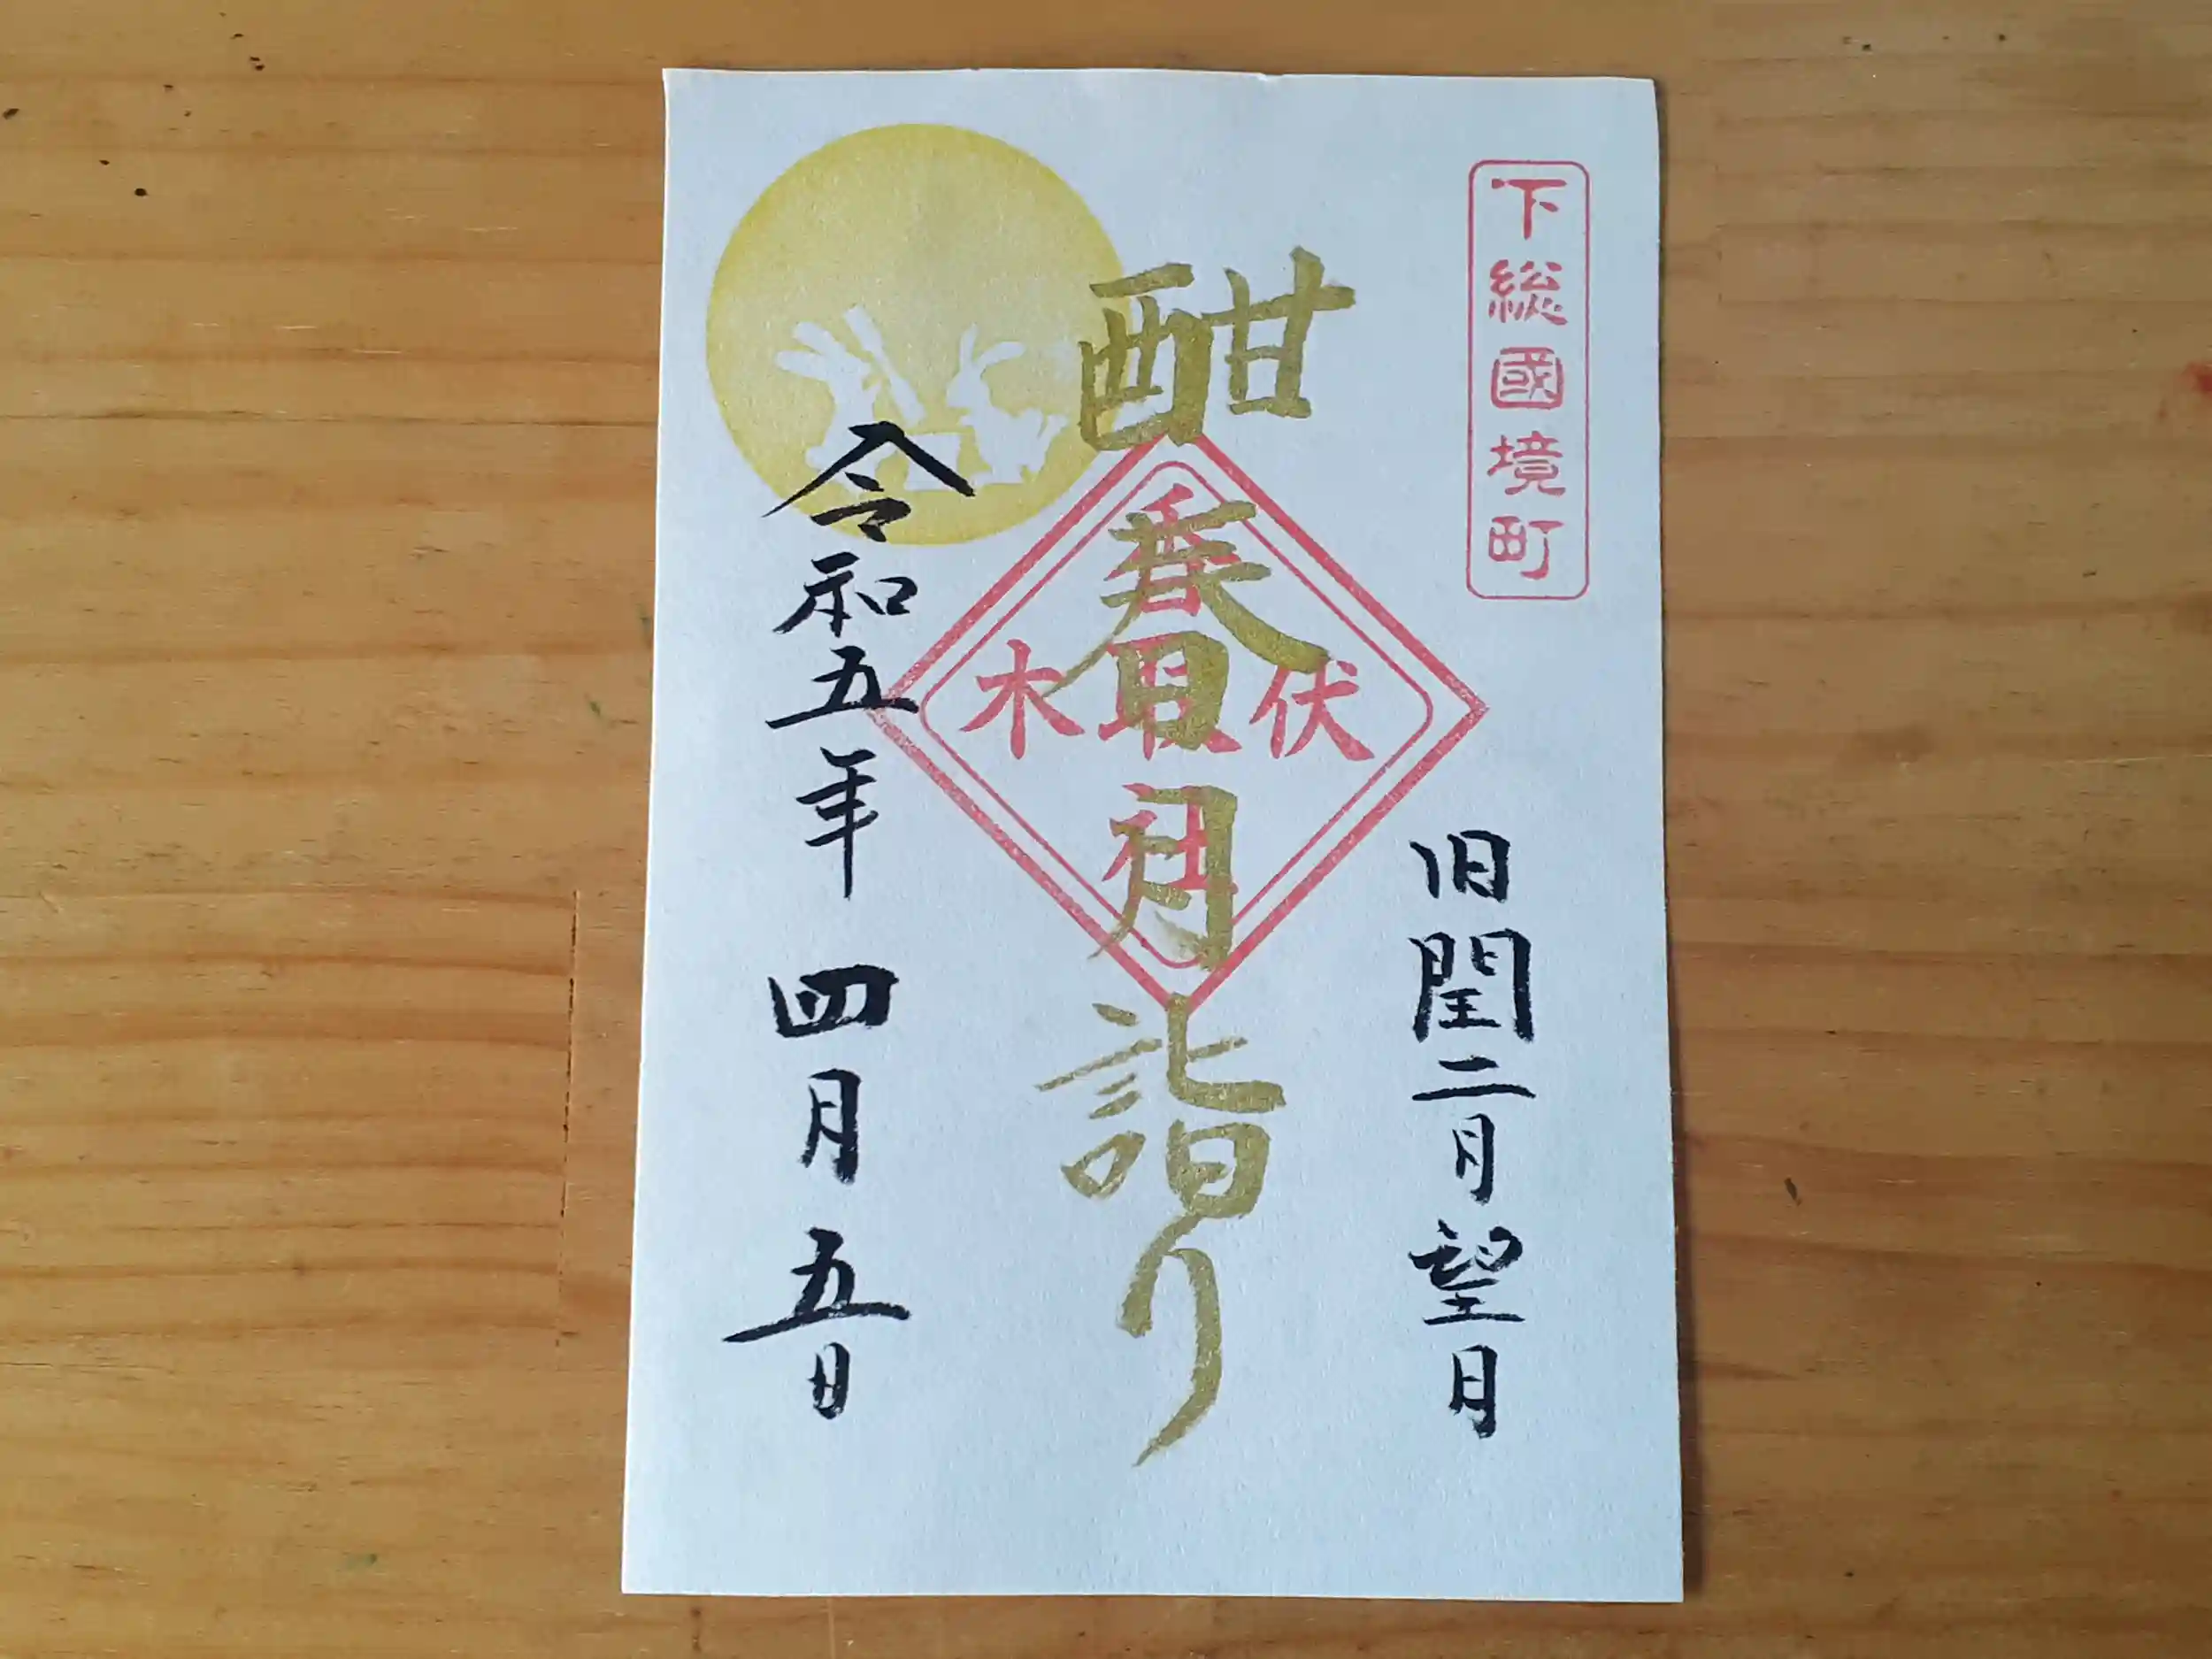 下総國境町
旧閏二月望月
酣春月詣り
伏木
香取社
令和五年四月五日